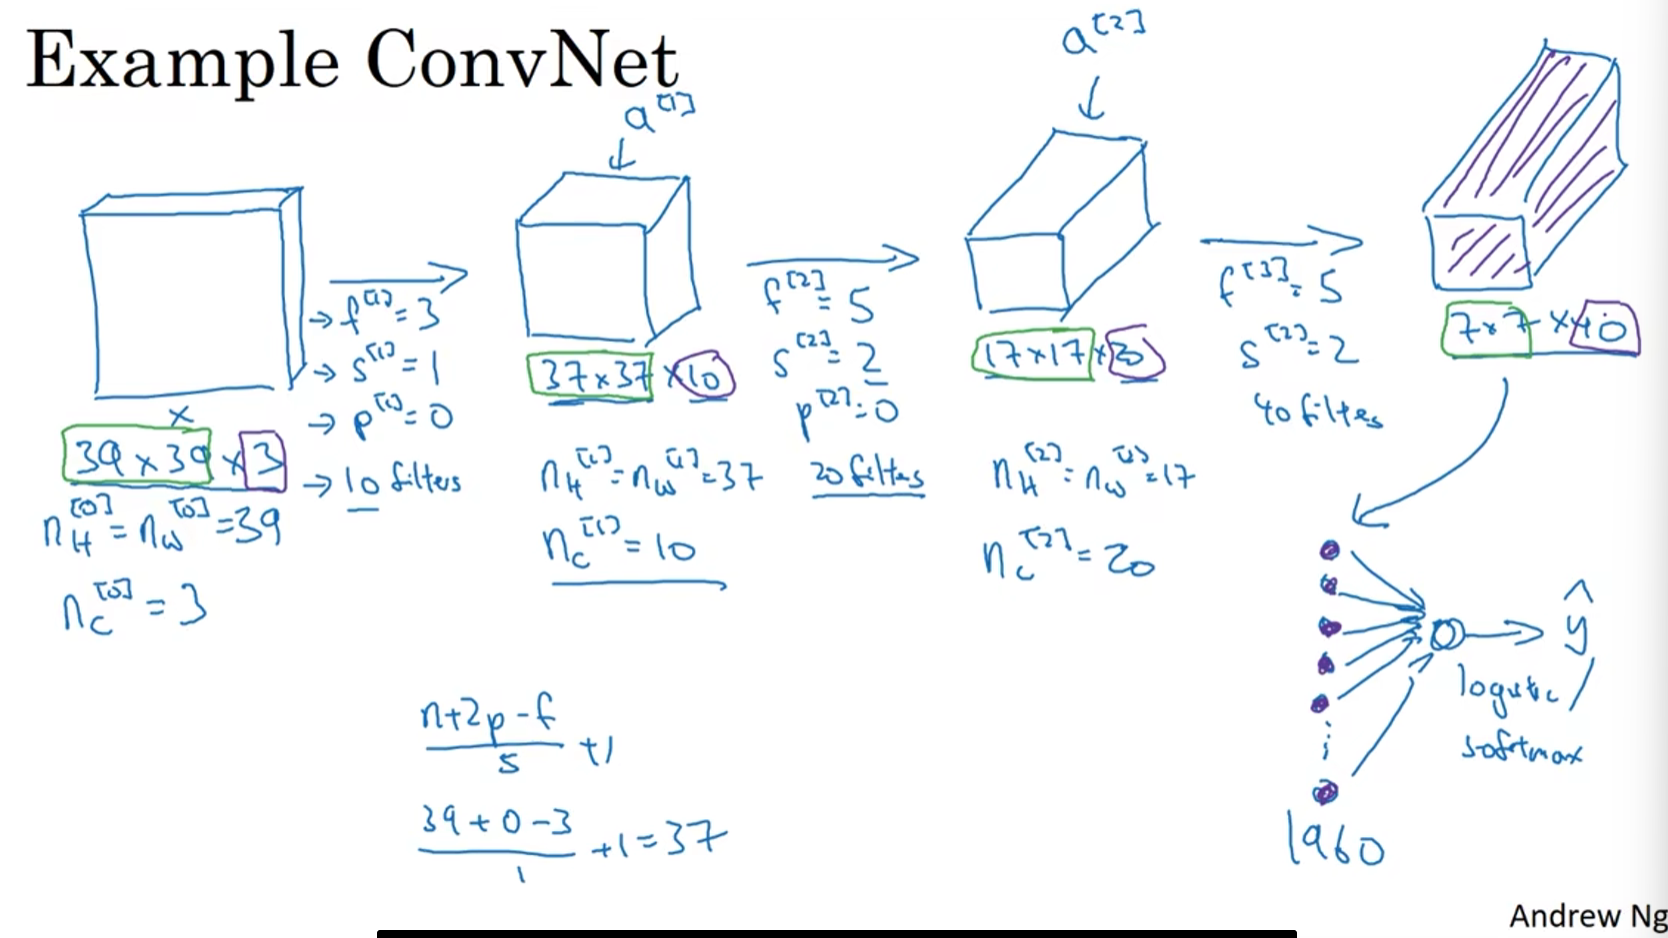 Example ConvNet
a^[1]
a^[2]
x
39 x 39 x 3
n_H^[0] = n_W^[0] = 39
n_C^[0] = 3
→ f^[1] = 3
→ s^[1] = 1
→ p^[1] = 0
→ 10 filters
37 x 37 x 10
n_H^[1] = n_W^[1] = 37
n_C^[1] = 10
f^[2] = 5
s^[2] = 2
p^[2] = 0
20 filters
17 x 17 x 20
n_H^[2] = n_W^[2] = 17
n_C^[2] = 20
f^[3] = 5
s^[2] = 2
40 filters
7 x 7 x 40
n+2p-f
s
+1
39 + 0 - 3
1
+1 = 37
ŷ
logistic /
softmax
1960
Andrew Ng